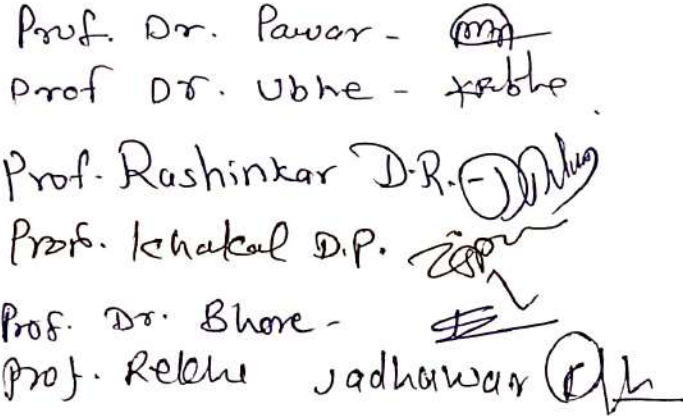 Prof. Dr. Pawar -
Prof Dr. Ubhe -
Prof. Rashinkar D.R. -
Prof. Khakal D.P.
Prof. Dr. Bhore -
Prof. Jadhawar